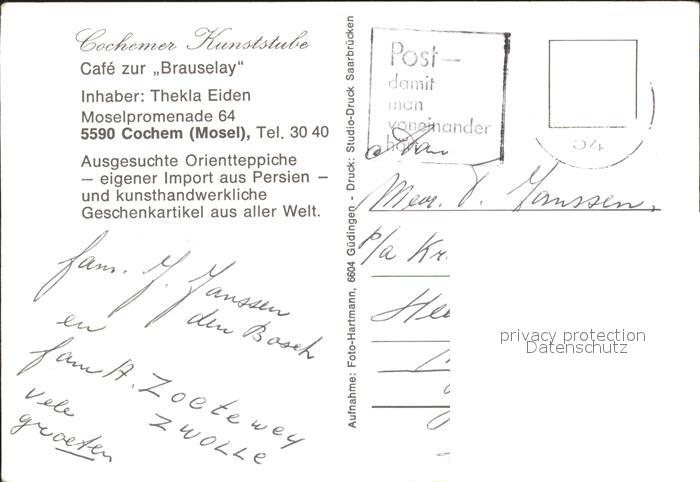 Cochemer Kunststube
Café zur „Brauselay“
Inhaber: Thekla Eiden
Moselpromenade 64
5590 Cochem (Mosel), Tel. 30 40
Ausgesuchte Orientteppiche
— eigener Import aus Persien —
und kunsthandwerkliche
Geschenkartikel aus aller Welt.
fam. J. Janssen
den Bosch
en
fam A. Zoetewey
ZWOLLE
vele
groeten
Aufnahme: Foto-Hartmann, 6604 Güdingen - Druck: Studio-Druck Saarbrücken
Post—
damit
man
voneinander
hört
54
Aan
Mevr. V. Janssen.
p/a Kr.
privacy protection
Datenschutz